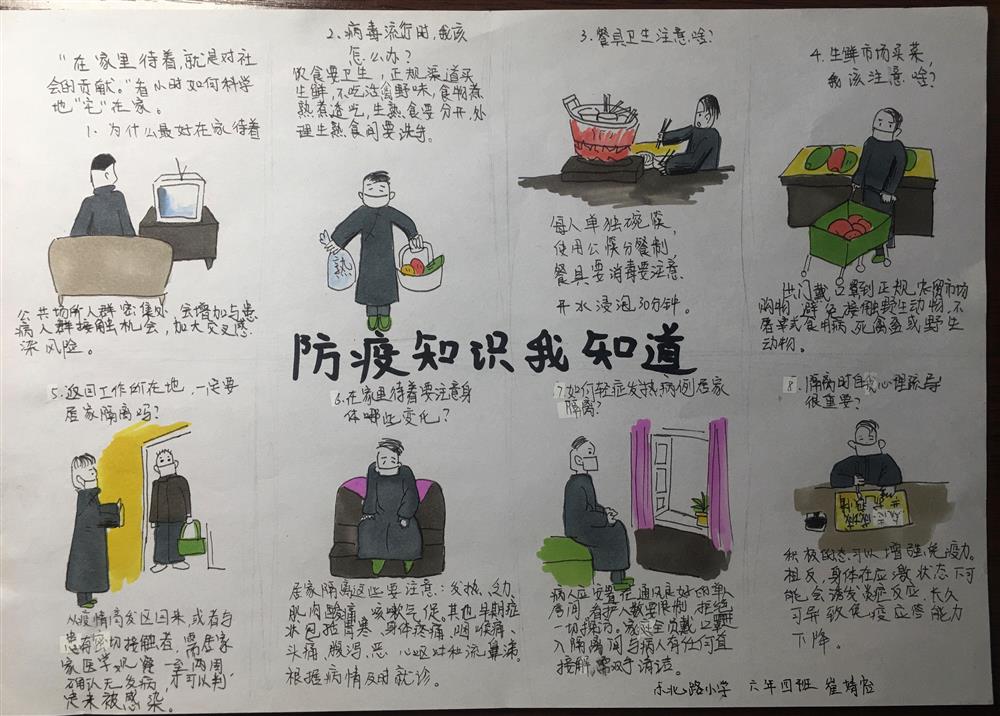 "在家里待着就是对社
会的贡献。"看小时如何科学
地"宅"在家。
1. 为什么最好在家待着
公共场所人群密集处，会增加与患
病人群接触机会，加大交叉感
染风险。
2. 病毒流行时，我该
怎么办？
饮食要卫生，正规渠道买
生鲜，不吃活禽野味，食物煮
熟煮透吃，生熟食要分开，处
理生熟食间要洗手。
熟
3. 餐具卫生注意啥？
每人单独碗筷，
使用公筷分餐制
餐具要消毒要注意
开水浸泡30分钟。
4. 生鲜市场买菜，
我该注意啥？
出门戴口罩到正规农贸市场
购物，避免接触野生动物，不
屠宰或食用病、死禽畜或野生
动物。
防疫知识我知道
5. 返回工作所在地，一定要
居家隔离吗？
从疫情高发区回来，或者与
患者密切接触者，需居家
家医学观察一至两周
确认无发病，才可以判
定未被感染。
6. 在家里待着要注意身
体哪些变化？
居家隔离这些要注意：发热、乏力、
肌肉酸痛、咳嗽气促。其他早期症
状包括胃寒、身体疼痛、咽喉痛、
头痛、腹泻、恶心呕吐和流鼻涕。
根据病情及时就诊。
7. 如何轻症发热病例居家
隔离？
病人应安置在通风良好的单人
房间，看护人数要限制，拒绝
一切探访。家庭全员戴口罩
入隔离间与病人有任何直
接解，需双手清洁。
8. 隔离时自我心理疏导
很重要？
积极的态可以增强免疫力。
相反，身体在应激状态下可
能会诱发炎症反应，长久
可导致免疫应答能力
下降。
东北路小学 六年四班 崔婧